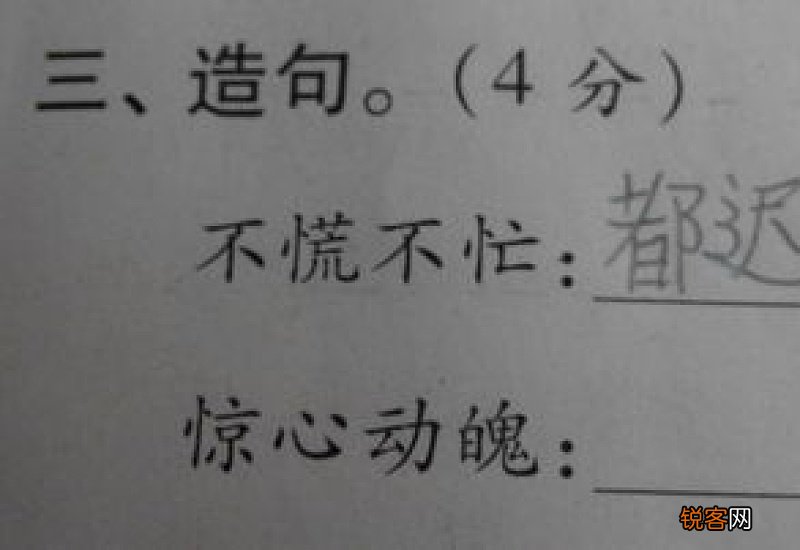 三、造句。(4 分)
不慌不忙:都迟
惊心动魄:
锐客网